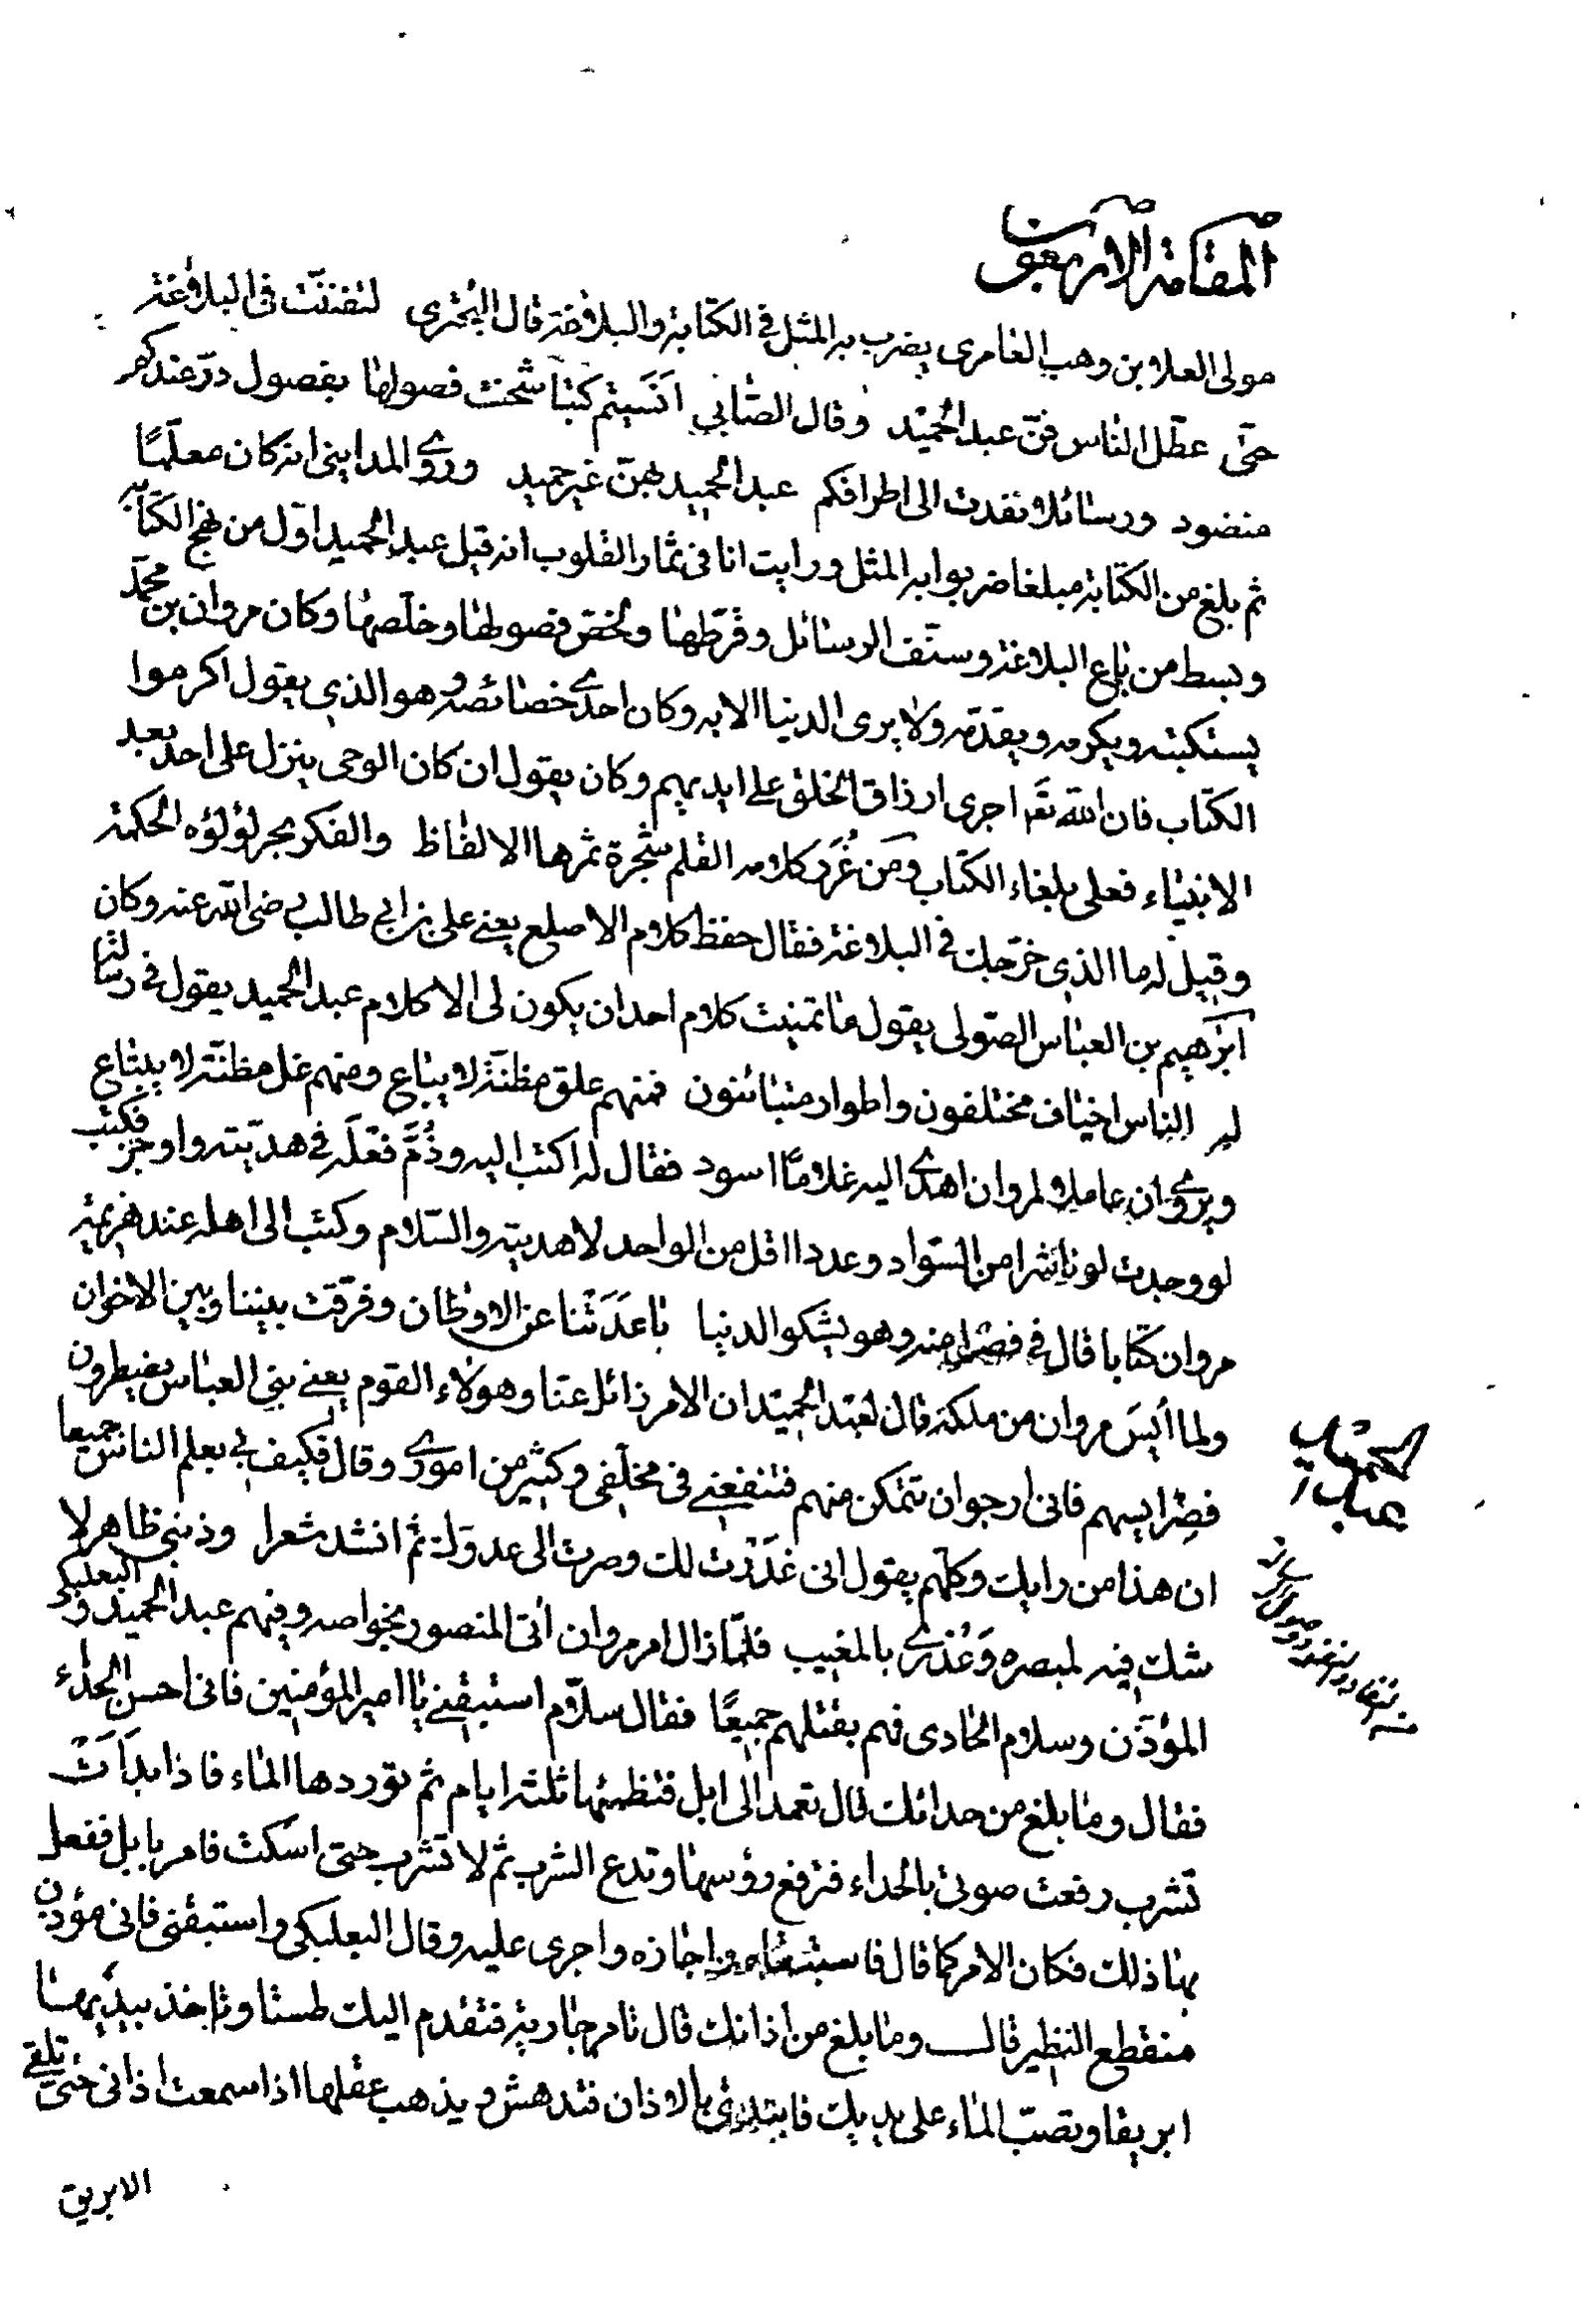 المقامة الاربعون
مولى العلا بن وهب العامرى يضرب به المثل فى الكتابة والبلاغة قال البحترى لتفننت فى البلاغة
حتى عطل الناس فن عبد الحميد وقال الصابي انسيتم كتبا شحنت فصولها بفصول در عندكم
منضود ورسائلا نفدت الى اطرافكم عبد الحميد بهن غير حميد وروى المدايني انه كان معلما
ثم بلغ من الكتابة مبلغا ضربوا به المثل ورايت انا فى ثمار القلوب انه قيل عبد الحميد اول من نهج الكتابة
وبسط من باع البلاغة وسنف الرسائل وقرطها ولخص فصولها وخلصها وكان مروان بن محمد
يستكتبه ويكرمه ويقدمه ولا يرى الدنيا الا به وكان احدى خصائصه وهو الذي يقول اكرموا
الكتاب فان الله تعه اجرى ارزاق الخلق على ايديهم وكان يقول ان كان الوحى ينزل على احد بعد
الانبياء فعلى بلغاء الكتاب ومن غرر كلامه القلم شجرة ثمرها الالفاظ والفكر بحر لؤلؤه الحكمة
وقيل له ما الذي خرجك فى البلاغة فقال حفظ كلام الاصلع يعنى على بن ابي طالب رضى الله عنه وكان
ابرهيم بن العباس الصولى يقول ما تمنيت كلام احد ان يكون لى الا كلام عبد الحميد يقول فى رسالة
له الناس اخياف مختلفون واطوار متبائنون فمنهم علق مظنة لا يباع ومنهم غل مظنة لا يبتاع
ويروى ان عاملا لمروان اهدى اليه غلاما اسود فقال له اكتب اليه وذم فعله فى هديته واوجز فكتب
لو وجدت لونا شرا من السواد وعددا اقل من الواحد لاهديته والسلام وكتب الى اهله عند هزيمة
مروان كتابا قال فى فصل منه وهو يشكو الدنيا باعدتنا عن الاوطان وفرقت بيننا وبين الاخوان
ولما أيس مروان من ملكه قال لعبد الحميد ان الامر زائل عنا وهولاء القوم يعنى بني العباس يضطرون
فصر اليهم فانى ارجو ان تتمكن منهم فتنفعنى فى مخلفى وكثير من امورى وقال فكيف لي بعلم الناس جميعا
ان هذا من رايك وكلهم يقول انى غدرت لك وصرت الى عدوك ثم انشد شعرا وذنبي ظاهر لا
شك فيه لمبصره وعذرى بالمغيب فلما زال امر مروان أتى المنصور بخواصه وفيهم عبد الحميد والبعلبكى
المؤذن وسلام الحادى فهم بقتلهم جميعا فقال سلام استبقنى يا امير المؤمنين فانى احسن الحداء
فقال وما بلغ من حدائك قال تعمد الى ابل فتظمئها ثلثة ايام ثم توردها الماء فاذا بدأت
تشرب رفعت صوتى بالحداء فترفع رؤسها وتدع الشرب ثم لا تشرب حتى اسكت فامر بابل ففعل
بها ذلك فكان الامر كما قال فاستبقاه واجازه واجرى عليه وقال البعلبكى واستبقنى فانى مؤذن
منقطع النظير قال وما بلغ من اذانك قال تامر جارية فتقدم اليك طستا وتاخذ بيديها
ابريقا وتصب الماء على يديك فابتدئ بالاذان فتدهش ويذهب عقلها اذا سمعت اذانى حتى تلقى
الابريق
عبد الحميد